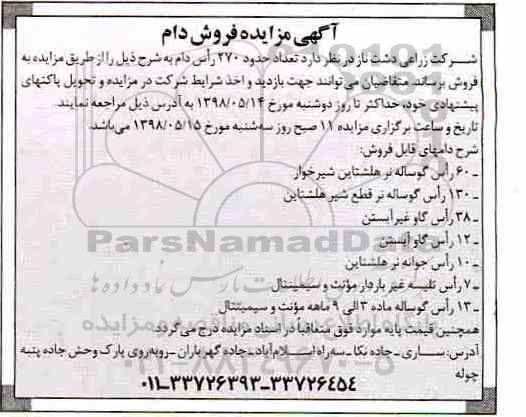 آگهی مزایده فروش دام
شرکت زراعی دشت ناز در نظر دارد تعداد حدود ۲۷۰ رأس دام به شرح ذیل را از طریق مزایده به
فروش برساند. متقاضیان می‌توانند جهت بازدید و اخذ شرایط شرکت در مزایده و تحویل پاکتهای
پیشنهادی خود، حداکثر تا روز دوشنبه مورخ ۱۳۹۸/۰۵/۱۴ به آدرس ذیل مراجعه نمایند.
تاریخ و ساعت برگزاری مزایده ۱۱ صبح روز سه‌شنبه مورخ ۱۳۹۸/۰۵/۱۵ می‌باشد.
شرح دامهای قابل فروش:
ـ ۶۰ رأس گوساله نر هلشتاین شیرخوار
ـ ۱۳۰ رأس گوساله نر قطع شیر هلشتاین
ـ ۳۸ رأس گاو غیرآبستن
ـ ۱۲ رأس گاو آبستن
ـ ۱۰ رأس جوانه نر هلشتاین
ـ ۷ رأس تلیسه غیر باردار مؤنث و سیمینتال
ـ ۱۳ رأس گوساله ماده ۳ الی ۹ ماهه مؤنث و سیمینتال
همچنین قیمت پایه موارد فوق متعاقباً در اسناد مزایده درج می‌گردد
آدرس: ساری ـ جاده نکا ـ سه‌راه اسلام‌آباد ـ جاده گهرباران ـ روبه‌روی پارک وحش جاده پتبه
چوله
۰۱۱-۳۳۷۲۶۳۹۳-۳۳۷۲۶۴۵۴
ParsNamadData